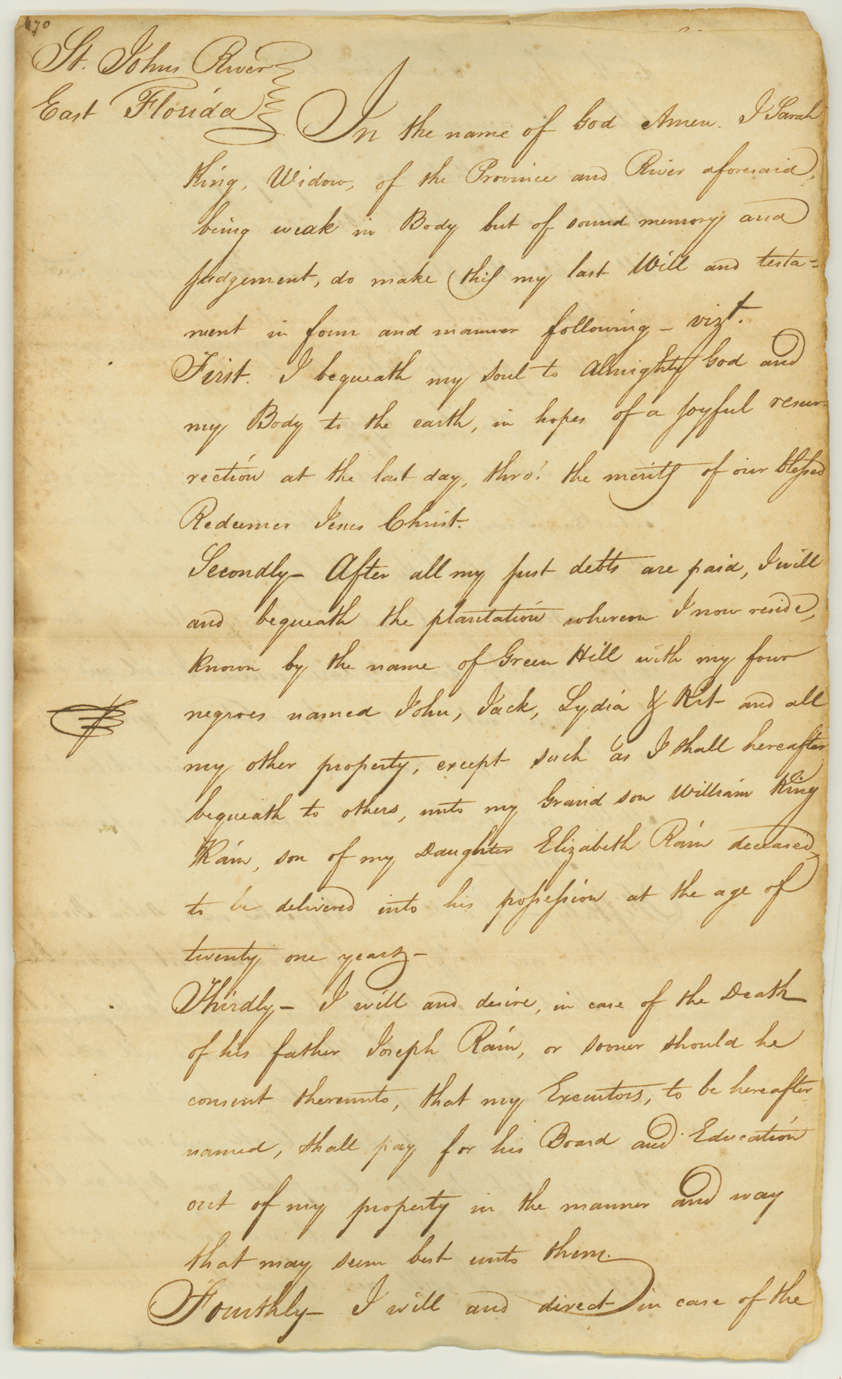 70
St. Johns River
East Florida
In the name of God Amen. I Sarah
King, Widow, of the Province and River aforesaid,
being weak in Body but of sound memory and
judgement, do make this my last Will and testa=
ment in form and manner following – vizt.
First. I bequeath my soul to Almighty God and
my Body to the earth, in hopes of a joyful resur=
rection at the last day, thro' the merits of our blessed
Redeemer Jesus Christ.
Secondly – After all my just debts are paid, I will
and bequeath the plantation whereon I now reside,
known by the name of Green Hill with my four
negroes named John, Jack, Lydia & Kit and all
my other property, except such as I shall hereafter
bequeath to others, unto my Grand son William King
Rain, son of my Daughter Elizabeth Rain deceased,
to be delivered into his possession at the age of
twenty one years –
Thirdly – I will and desire, in case of the Death
of his father Joseph Rain, or sooner should he
consent thereunto, that my Executors, to be hereafter
named, shall pay for his Board and Education
out of my property in the manner and way
that may seem best unto them.
Fourthly – I will and direct in case of the